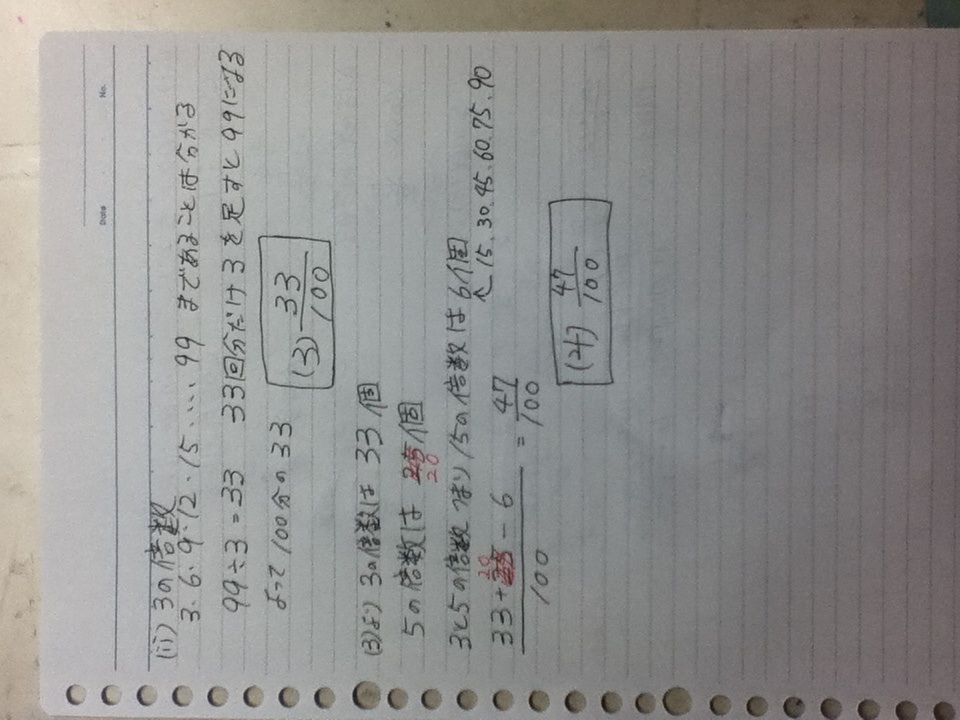 Date No.
(ii) 3の倍数
3・6・9・12・15・・・・99 まであることは分かる
99÷3=33 33回分だけ3を足すと99になる
よって100分の33
(3) 33/100
(3)より3の倍数は33個
5の倍数は 20個
3と5の倍数 つまり15の倍数は6個
↑15.30.45.60.75.90
33+20-6/100 = 47/100
(4) 47/100